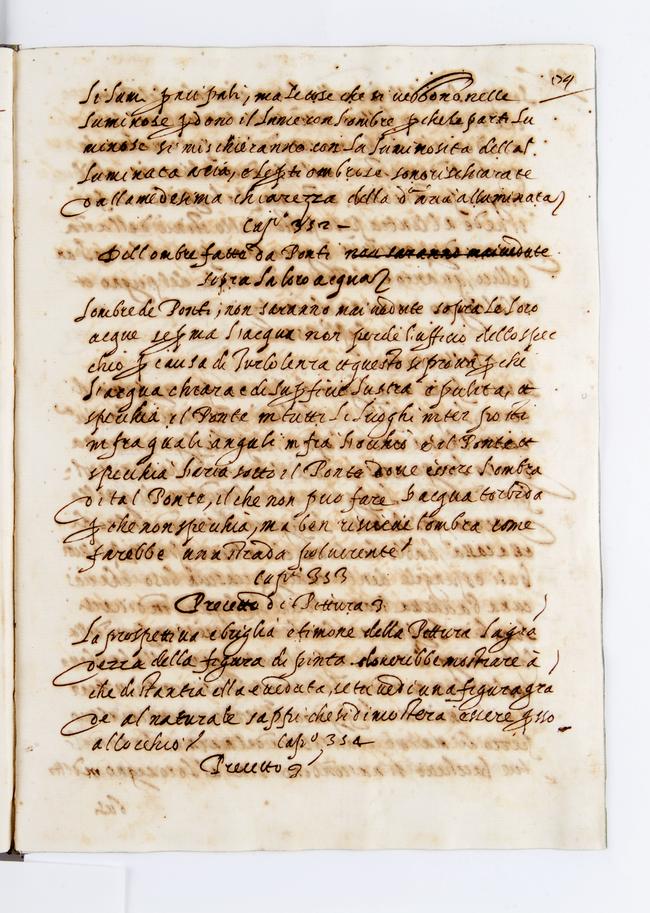 li lumi prīcipali, ma le cose che si vebbono nelle
luminose ꝑdono il lume con l'ombre ꝑche le parti lu
minose si mischieranno con la luminosità dell'al
luminata aria, e le ꝑti ombrose sono rischiarate
dalla medesima chiarezza della dᵗᵃ aria alluminata
Capᵒ 352
Dell'ombre fatte da Ponti
sopra la loro acqua
L'ombre de Ponti, non saranno mai vedute sopra le loro
acque se ꝑma l'acqua non perde l'ufficio dello spec
chio ꝑ causa di Turbolenza et questo si prova ꝑ chè
l'acqua chiara e di suꝑficie lustra e pulita, et
specchia il Ponte in tutti li luoghi interposti
infra quali anguli infra l'occhio e il Ponte et
specchia l'aria sotto il Ponte dove essere l'ombra
di tal Ponte, il che non può fare l'acqua torbida
ꝑ che non specchia, ma ben riceve l'ombra come
farebbe una strada polverente
Capᵒ 353
Precetto di Pittura
La prospettiva e briglia e timone della Pittura la gra
dezza della figura dipinta doverebbe mostrare à
che distantia ella e veduta, se tu vedi una figura gra
de al naturale sappi che si dimostera essere ꝑsso
all'occhio Capᵒ 354
Precetto